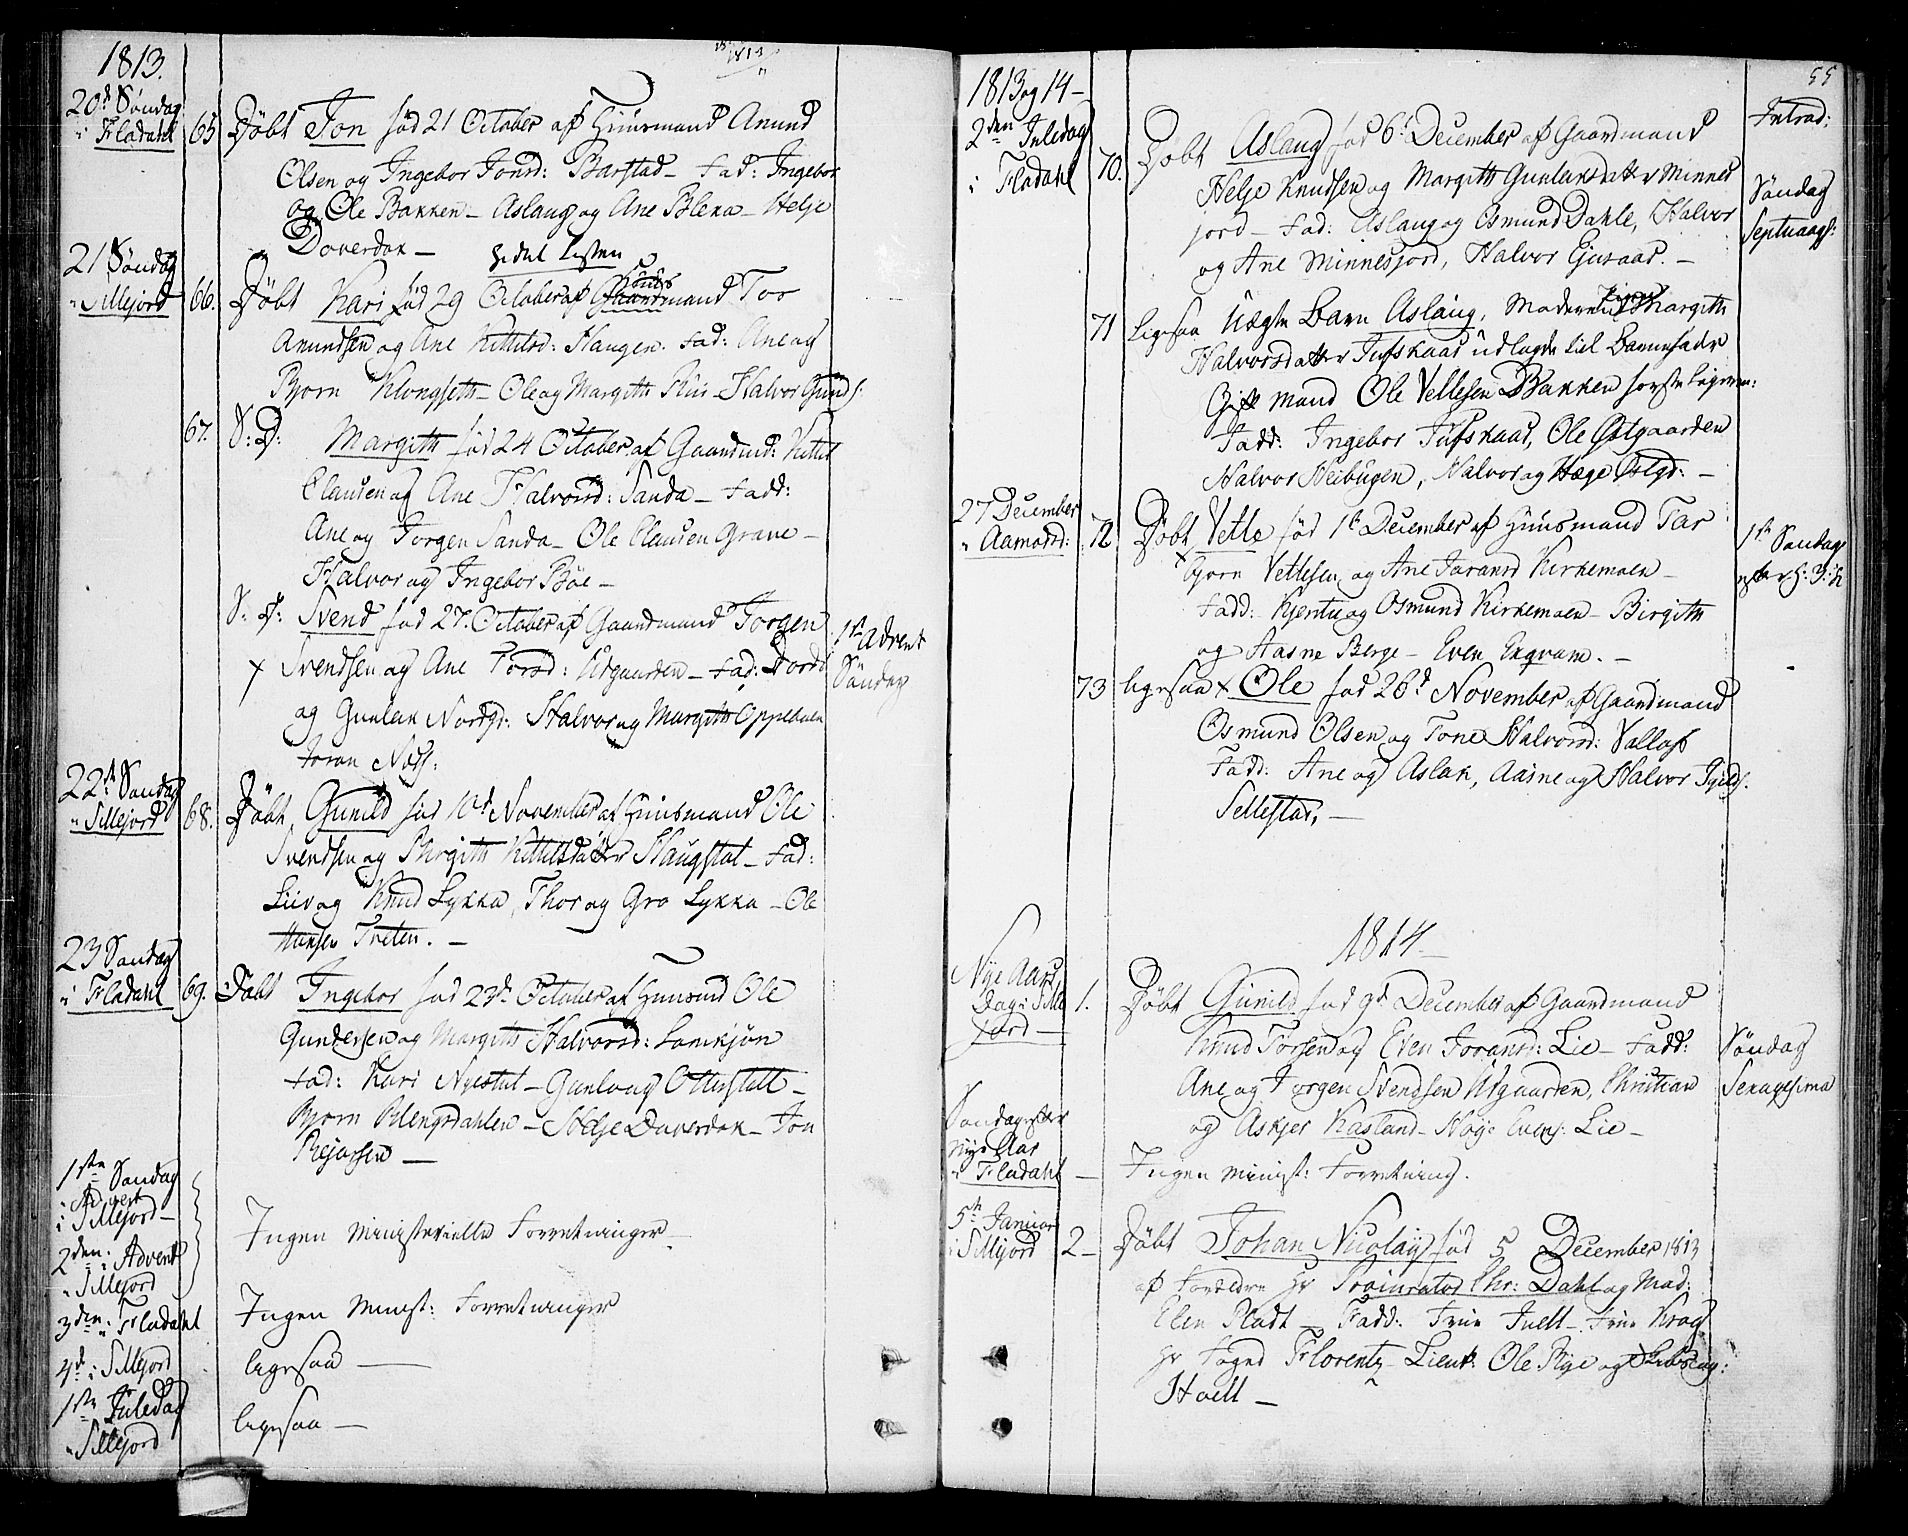 1813.
20d Søndag
i Fladahl
65 Døbt Jon fød 21 October af Huusmand Anund
Olsen og Ingebor Jonsd: Barstad – Fad: Ingebor
og Ole Bakken – Aslaug og Ane Bleka – Helje
Doverdok –
21 Søndag
i Sillejord
66. Døbt Kari fød 29 October af Gaardmand Tor
Anundsen og Ane Kittilsd: Haugen. Fad: Ane og
Bjorn Klongseth – Ole og Margith Riis – Halvor Gunds:
67. S: D: Margith fød 24 October af Gaardmd: Kittil
Clausen og Ane Halvorsd: Sanda – Fadd:
Ane og Jorgen Sanda – Ole Clausen Grave –
Halvor og Ingebor Bøe –
S: D: Svend fød 27. October af Gaardmand Jorgen
Svendsen og Ane Torsd: Utgaarden – Fad: Dordi
og Gunlek Nordg: Halvor og Margith Oppeboen
Joran Næss:
1ste Advent
Søndag
22de Søndag
i Sillejord
68. Døbt Gunild fød 10d November af Huusmand Ole
Svendsen og Birgith Kittilsdatter Haugstol – Fad:
Liv og Knud Lykka, Thor og Gro Lykka – Ole
Hansen Tveten. –
23 Søndag
i Fladahl
69. Døbt Ingebor fød 23d October af Huusmd Ole
Gundersen og Margith Halvorsd: Lonikjøn
Fad: Kari Nyestul – Gunlaug Otterstull –
Bjorn Blengsdahlen – Helje Doverdok – Jon
Rejersen –
1ste Søndag
i Advent
i Sillejord –
2den: i Advent
i Sillejord
Ingen Ministerielle Forretninger –
3den: i Fladahl
Ingen Minist: Forretninger
4d: i Sillejord
ligesaa –
1ste Juledag
i Sillejord
ligesaa –
55
1813 og 14 –
2den Juledag
i Fladahl
70. Døbt Aslaug fød 6d December af Gaardmand
Helje Knudsen og Margith Gunleksdatter Minnes
jord – Fad: Aslaug og Osmund Dahle, Halvor
og Ane Minnesjord, Halvor Gjusaas. –
Introd:
Søndag
Septuag:
71 ligesaa Uægte Barn Aslaug, Moderen Pigen Margith
Halvorsdatter Tufskaas udlagde til Barnefader
Gift Mand Ole Vetlesen Bakken første Leierm:
Fadd: Ingebor Tufskaas, Ole Østgaarden
Halvor Neibugen, Halvor og Hæge Østgd: –
27 December
i Aamotsd:
72 Døbt Vetle fød 1te December af Huusmand Tar
bjorn Vetlesen og Ane Joransd Kirkemoen –
Fadd: Kjentu og Osmund Kirkemoen – Birgith
og Aasne Berge – Even Exqvam. –
1ste Søndag
73 ligesaa Ole fød 26d November af Gaardmand
Osmund Olsen og Tone Halvorsd: Vallos
Fadd: Ane og Aslak, Aasne og Halvor
Sellestad, –
1814 –
Nye Aars
Dag i Sille
jord –
1. Døbt Gunild fød 9d December af Gaardmand
Knud Torsen og Even Joransd: Lie – Fadd:
Ane og Jorgen Svendsen Utgaarden, Christian
og Askjer Kasland – Høye Evens: Lie –
Søndag
Sexagesima
Søndag efter
Nye Aar
i Fladahl
– Ingen Minist: Forretning.
5te Januar
i Sillejord
2 – Døbt Johan Nicolay fød 5 December 1813
af Foreldre Hr Procurator Chr: Dahl og Mad:
Elen Pladt – Fadd: Frue Juell – Frue Krag
Hr Foged Florentz – Lieut: Ole Rye og
Hoell –